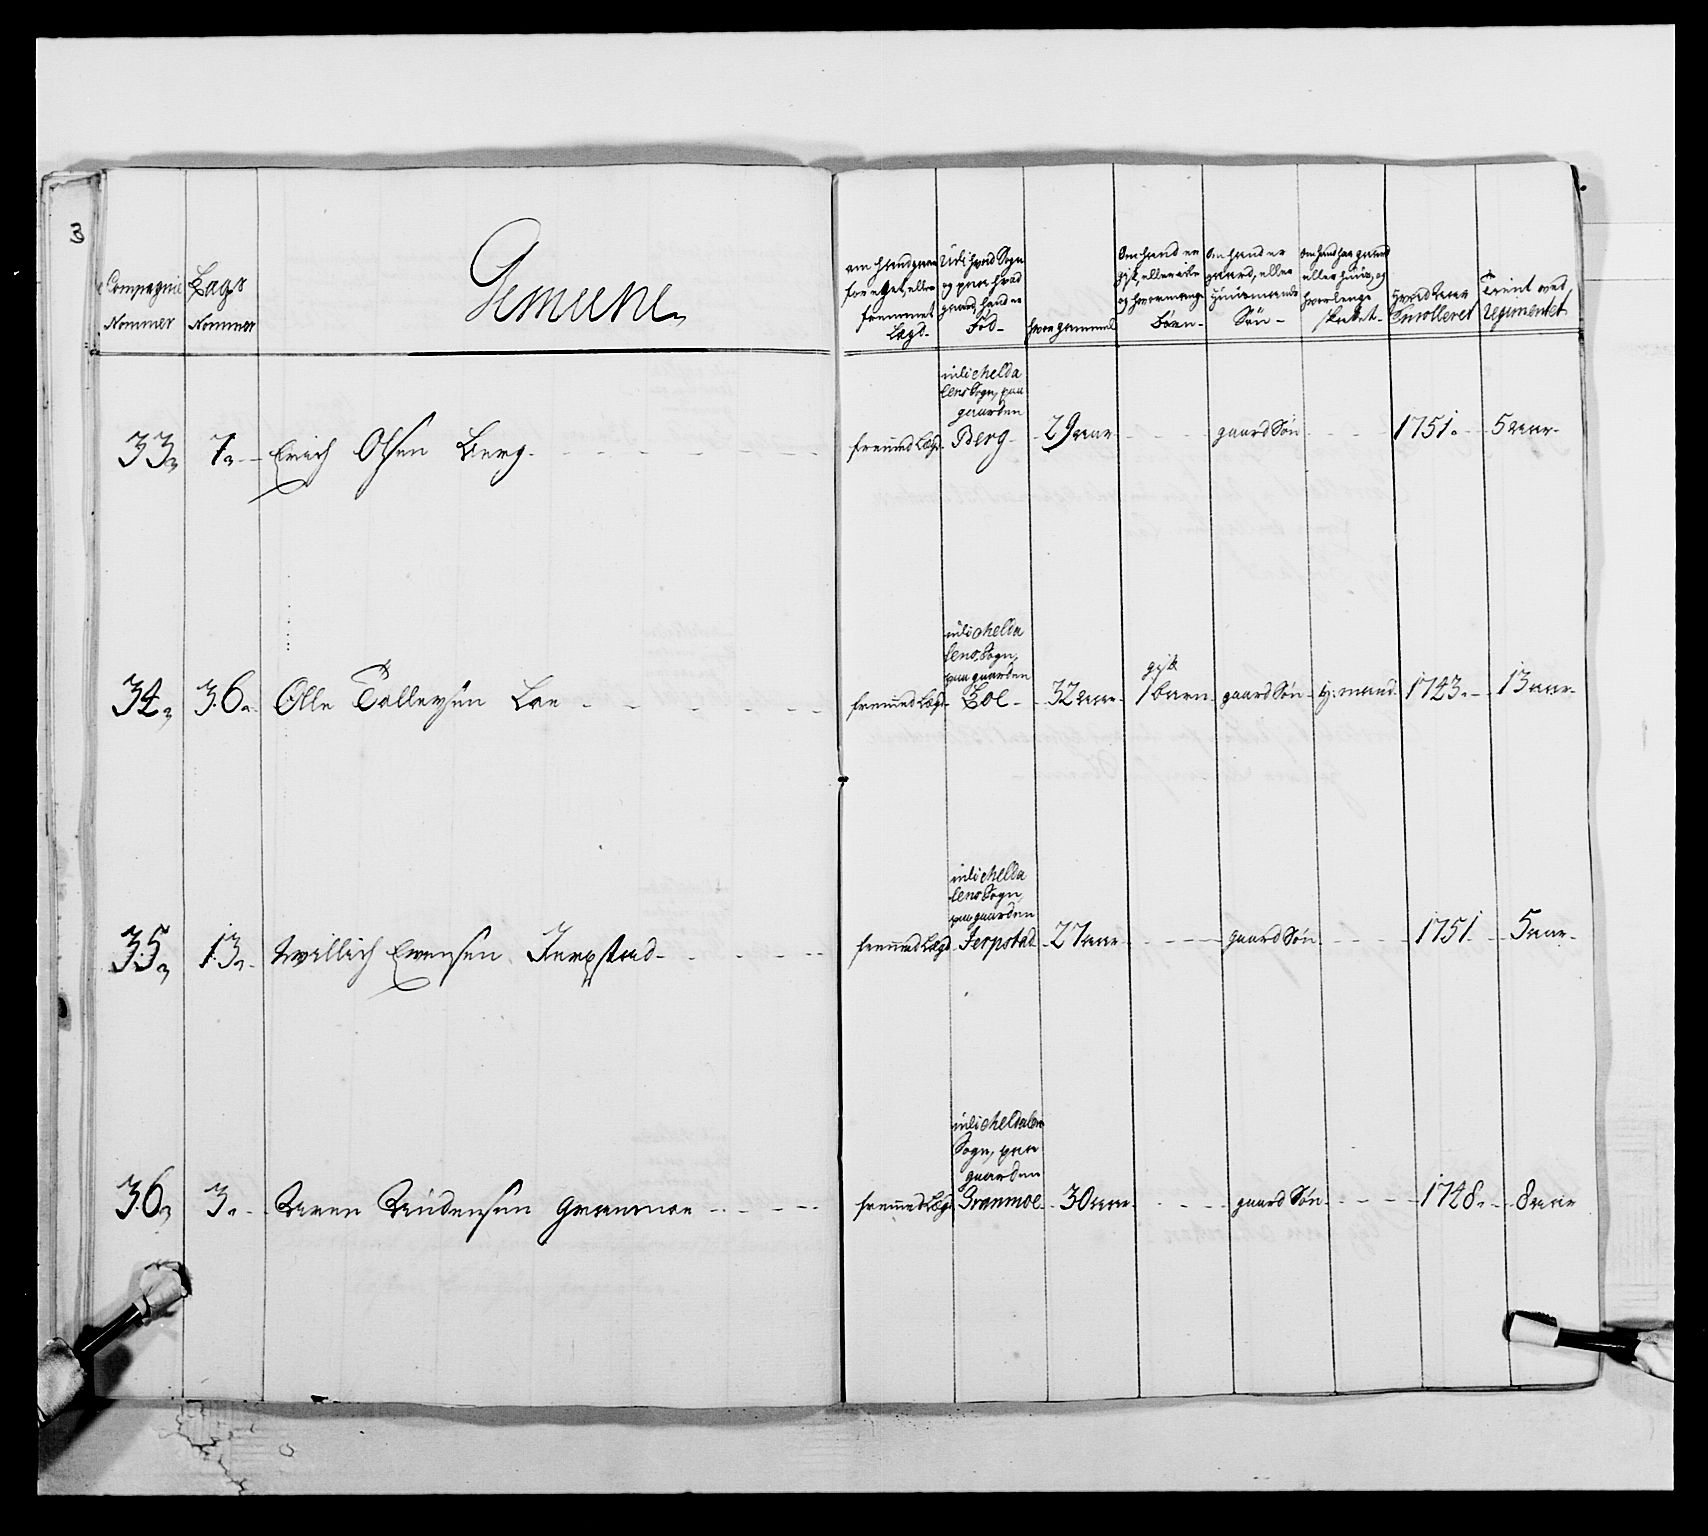 3
Compagnie Nommer
Lægs Nommer
Gemeene
om Hand gaar for eget, eller fremmet Lægd
Udi hvad Sogn og paa hvad gaard hand er Fød
hvor gammel
Om hand er gift, eller ei og hvormange Børn
Om hand er gaard, eller Huusmands Søn
Om hand har gaard eller huus, og hvorlenge skattet
Hvad Aar Enrolleret
Tient ved Regimentet
33 7 Erich Olsen Berg fremmed Lægd udi Meldalens Sogn, paa gaarden Berg 29 aar gaard Søn 1751 5 aar
34 36 Olle Tollevsen Loe fremmed Lægd udi Meldalens Sogn, paa gaarden Loe 32 aar gift 1 barn gaard Søn H: mand 1743 13 aar
35 13 Willich Evensen Jerpstad fremmed Lægd udi Meldalens Sogn paa gaarden Jerpstad 27 aar gaard Søn 1751 5 aar
36 3 Aren Amdensen Granmoe fremmed Lægd udi Meldalens Sogn, paa gaarden Granmoe 30 aar gaard Søn 1748 8 aar